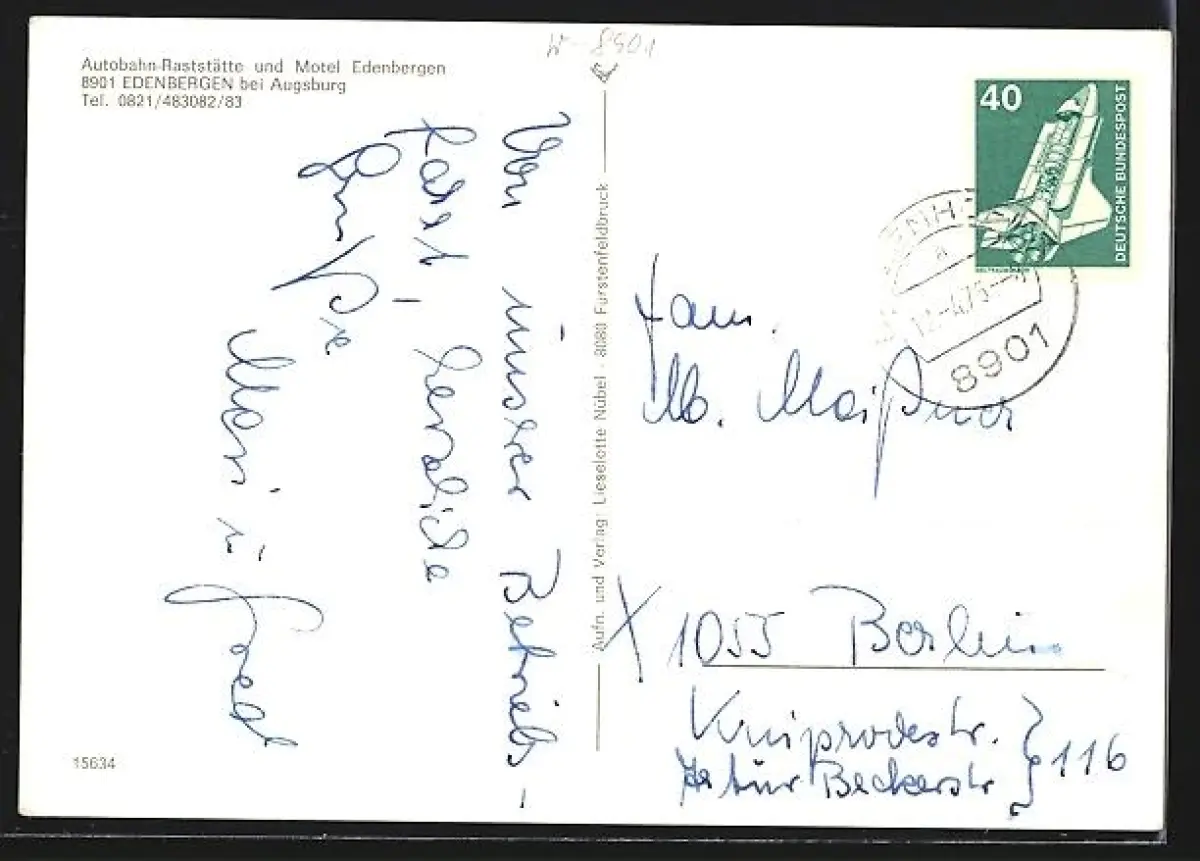 W-8901
Autobahn-Raststätte und Motel Edenbergen
8901 EDENBERGEN bei Augsburg
Tel. 0821/483082/83
Von unserer Betriebs-
fahrt, herzliche
Grüße
15634
Aufn. und Verlag: Lieselotte Nübel - 8080 Fürstenfeldbruck
40
DEUTSCHE BUNDESPOST
8901
Fam.
M. Meißner
X 1055 Berlin
Kniprodestr.
Artur Beckerstr } 116